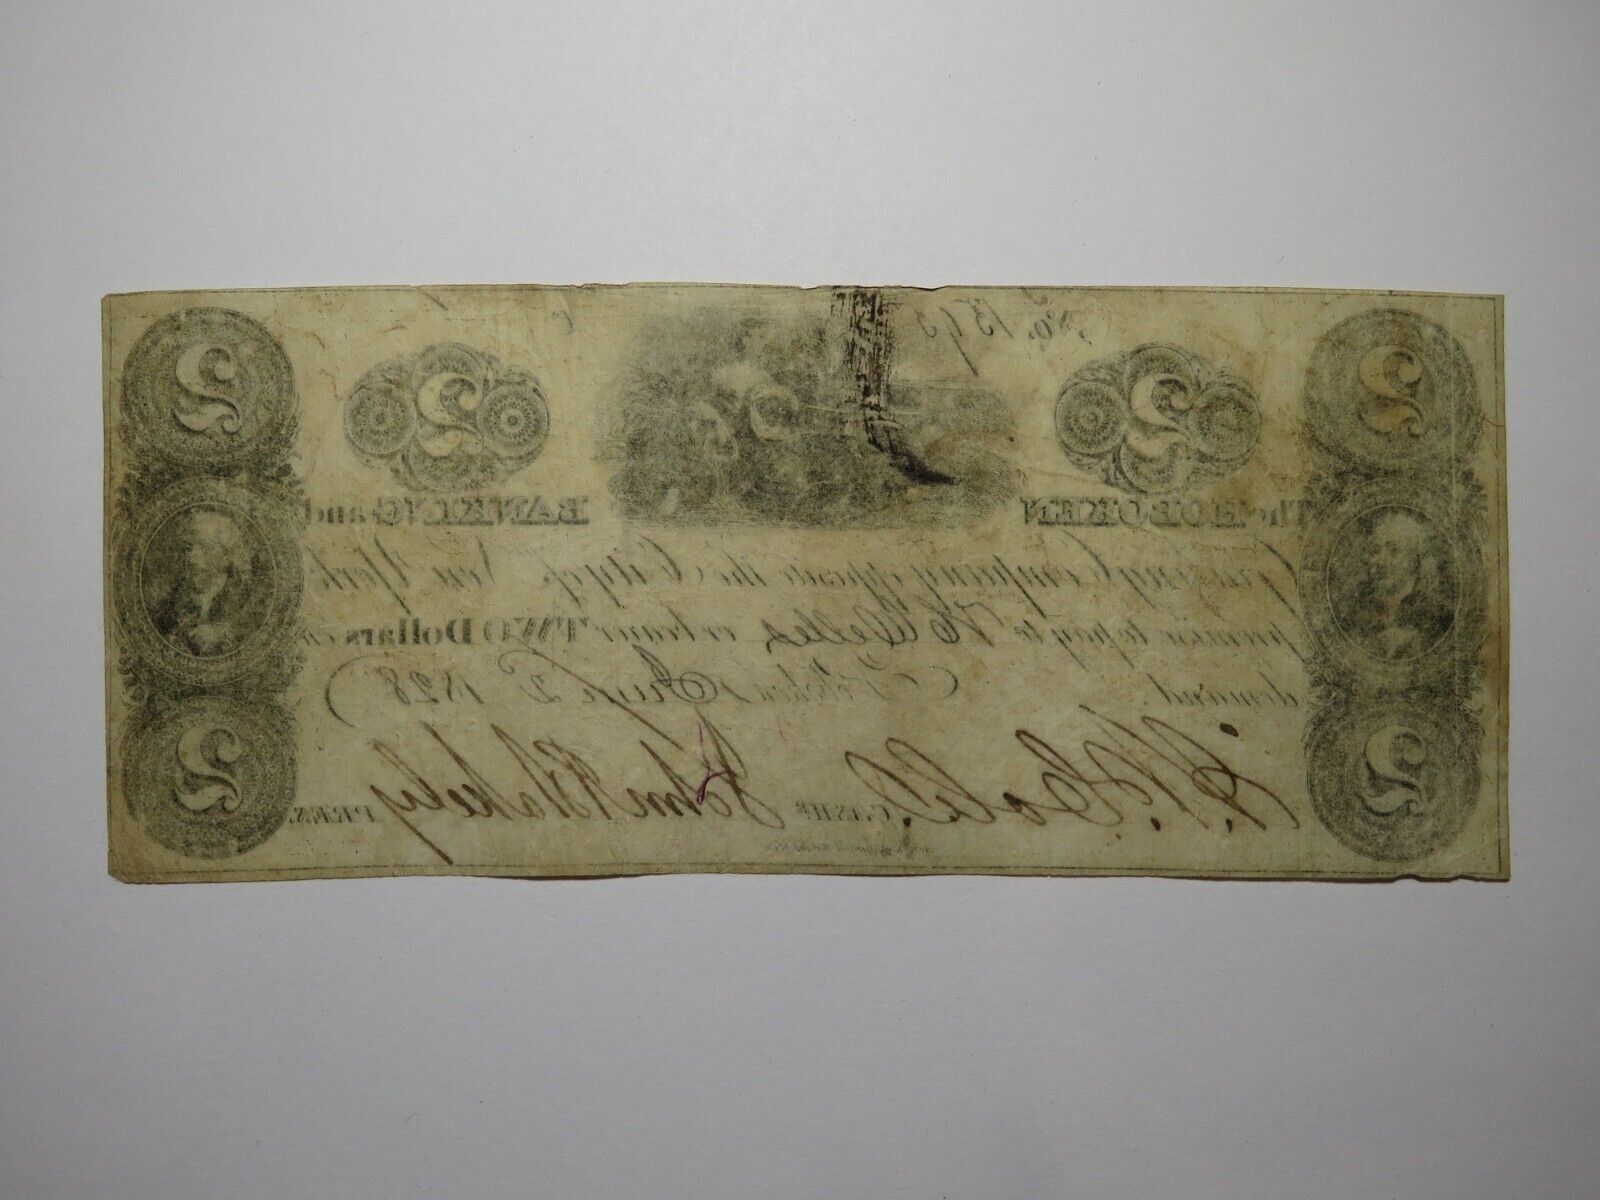 No. 1595
2 2 2 2
The HOBOKEN BANKING and
Grazing Company opposite the City of New York
promise to pay to H. Welles or bearer TWO Dollars on
demand. Hoboken 2 1828
2 2
CASHr. John Blakely PRES.